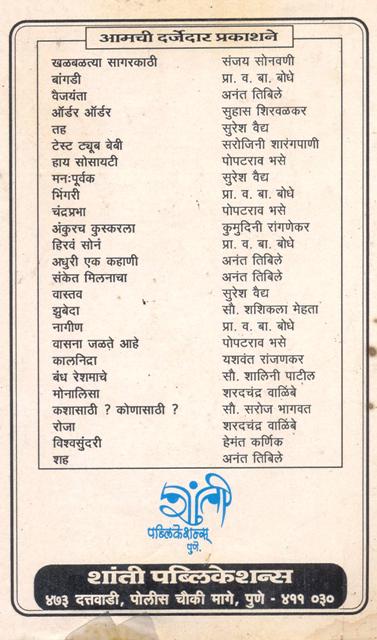 आमची दर्जेदार प्रकाशने
खळबळत्या सागरकाठी संजय सोनवणी
बांगडी प्रा. व. बा. बोधे
वैजयंता अनंत तिबिले
ऑर्डर ऑर्डर सुहास शिरवळकर
तह सुरेश वैद्य
टेस्ट ट्यूब बेबी सरोजिनी शारंगपाणी
हाय सोसायटी पोपटराव भसे
मनःपूर्वक सुरेश वैद्य
भिंगरी प्रा. व. बा. बोधे
चंद्रप्रभा पोपटराव भसे
अंकुरच कुस्करला कुमुदिनी रांगणेकर
हिरवं सोनं प्रा. व. बा. बोधे
अधुरी एक कहाणी अनंत तिबिले
संकेत मिलनाचा अनंत तिबिले
वास्तव सुरेश वैद्य
झुबेदा सौ. शशिकला मेहता
नागीण प्रा. व. बा. बोधे
वासना जळते आहे पोपटराव भसे
कालनिद्रा यशवंत रांजणकर
बंध रेशमाचे सौ. शालिनी पाटील
मोनालिसा शरदचंद्र वाळिंबे
कशासाठी ? कोणासाठी ? सौ. सरोज भागवत
रोजा शरदचंद्र वाळिंबे
विश्वसुंदरी हेमंत कर्णिक
शह अनंत तिबिले
शांती
पब्लिकेशन्स्
पुणे.
शांती पब्लिकेशन्स
४७३ दत्तवाडी, पोलीस चौकी मागे, पुणे - ४११ ०३०